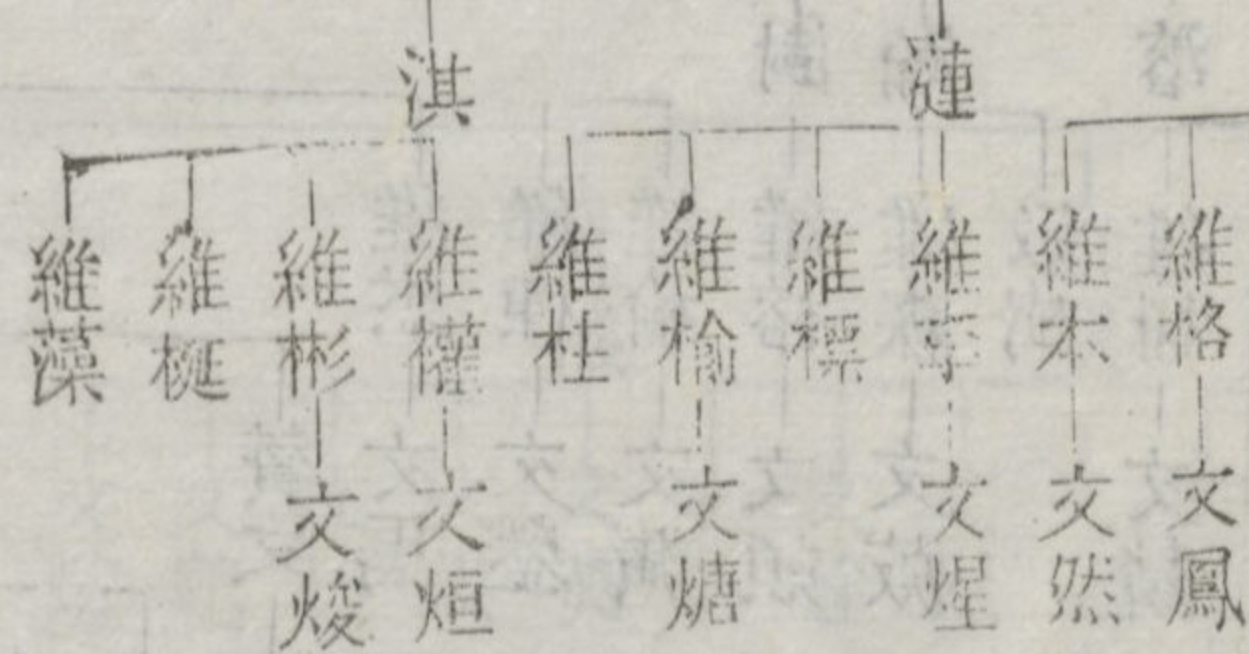 漣 淇
維格 維本 維李 維標 維榆 維柱 維權 維彬 維梴 維藻
文鳳 文然 文煋 文煻 文烜 文焌